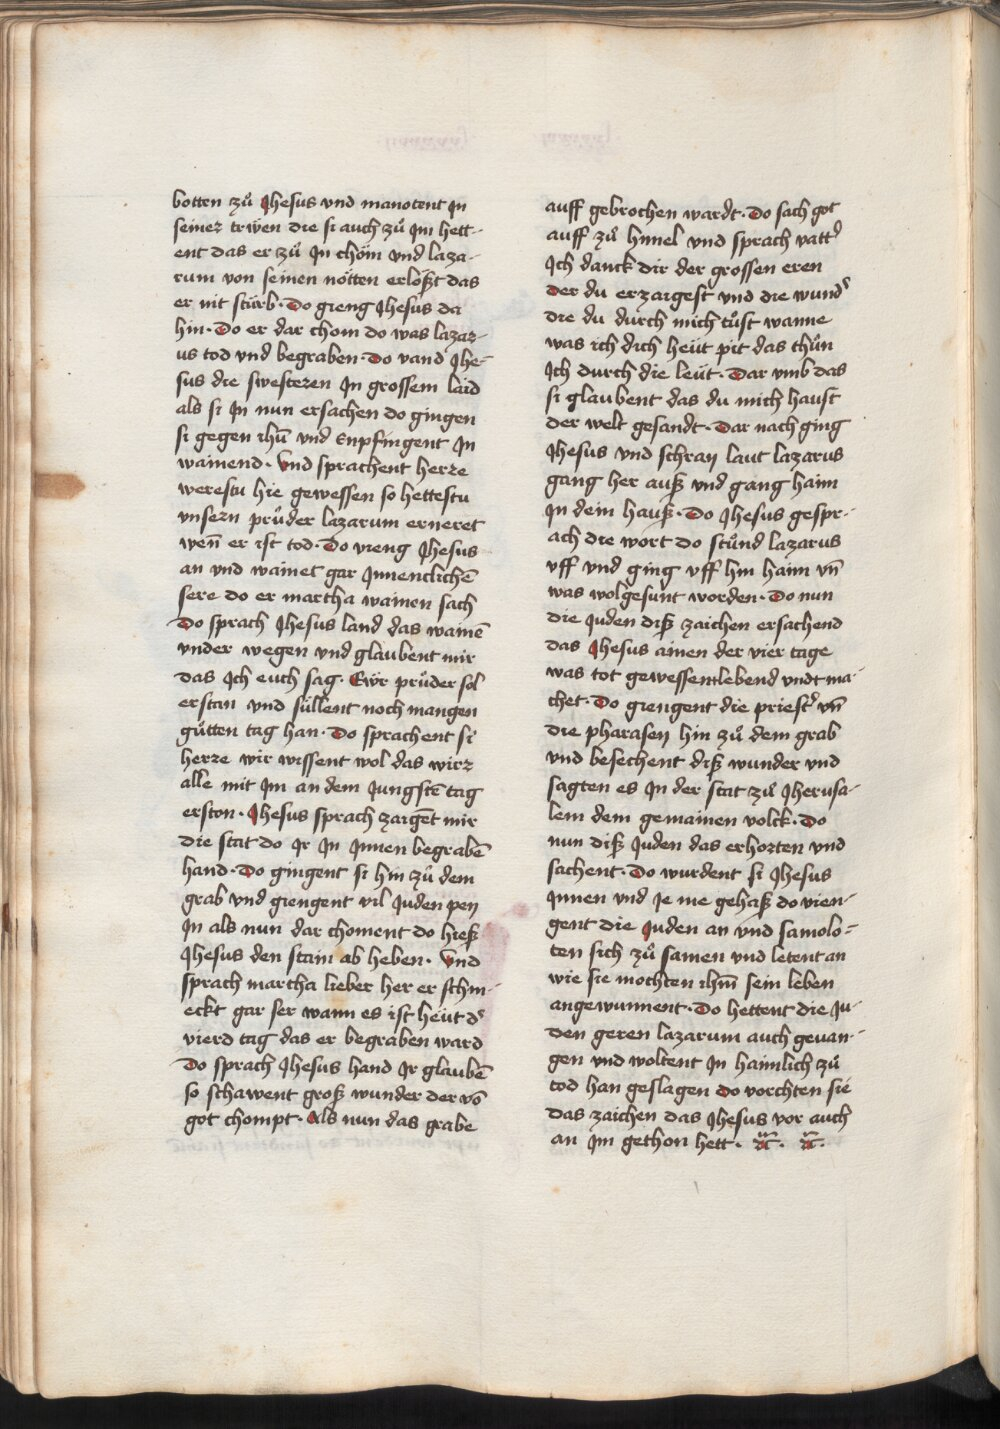 botten zuͦ Jhesus vnd manotent Jn
seiner trẅen die si auch zuͦ Jm hett-
ent das er zuͦ Jn chöm vnd laza-
rum von seinen nötten erlößt das
er nit stürb. Do gieng Jhesus da
hin. Do er dar chom do was lazar-
us tod vnd begraben. Do vand Jhe-
sus die swesteren Jn grossem laid
als si Jn nun ersachen do gingen
si gegen ihm̄ vnd Enpfingent Jn
wainend. Vnd sprachent herre
werestu hie gewessen so hettestu
vnsern pruͦder lazarum erneret
wen̄ er ist tod. Do vieng Jhesus
an vnd wainet gar Jnnenclichē
sere do er martha wainen sach
Do sprach Jhesus land das wainē
vnder wegen vnd glaubent mir
das Jch euch sag. Eẅr pruͦder sol
erstan vnd süllent noch mangen
guͦtten tag han. Do sprachent si
herre wir wissent wol das wirr
alle mit Jm an dem Jungstē tag
erston. Jhesus sprach zaigēt mir
die stat do Jr Jn Jnnen begrabē
hand. Do gingent si hin zuͦ dem
grab vnd giengent vil Juden peÿ
Jn als nun dar choment do hieß
Jhesus den stain ab heben. Vnd
sprach martha lieber her er schm-
eckt gar ser wann es ist heüt d᾽
vierd tag das er begraben ward
Do sprach Jhesus hand Jr glaubē
so schawent groß wunder der vō
got chompt. Als nun das grabe
auff gebrochen wardt. Do sach got
auff zuͦ himel vnd sprach vatt᾽
Jch danck dir der grossen eren
Der du erzaigest vnd die wund᾽
die du durch mich tuͦst wanne
was ich dich heüt pit das thuͦn
Jch durch die leüt. Dar vmb das
si glaubent das du mich haust
der welt gesandt. Dar nach ging
Jhesus vnd schray laut lazarus
gang her auß vnd gang haim
Jn dein hauß. Do Jhesus gespr-
ach die wort do stuͦnd lazarus
vff vnd ging vff hin haim vn̄
was wolgesunt worden. Do nun
die Juden diß zaichen ersachend
das Jhesus ainen der vier tage
was tot gewessen lebend vndt ma-
chet. Do giengent die priest᾽ vn̄
die pharaseÿ hin zuͦ dem grab
vnd besechent diß wunder vnd
sagten es Jn der stat zuͦ Jherusa-
lem dem gemainen volck. Do
nun diß Juden das erhorten vnd
sachent. Do wurdent si Jhesus
Jnnen vnd Je me gehaß do vien-
gent die Juden an vnd samolo-
ten sich zuͦ samen vnd letent an
wie sie mochten ihm̄ sein leben
angewunnent. Do hettent die Ju-
den geren lazarum auch gevan-
gen vnd woltent Jn haimlich zuͦ
tod han geslagen do vorchten sie
das zaichen das Jhesus vor auch
an Jm gethon hett.